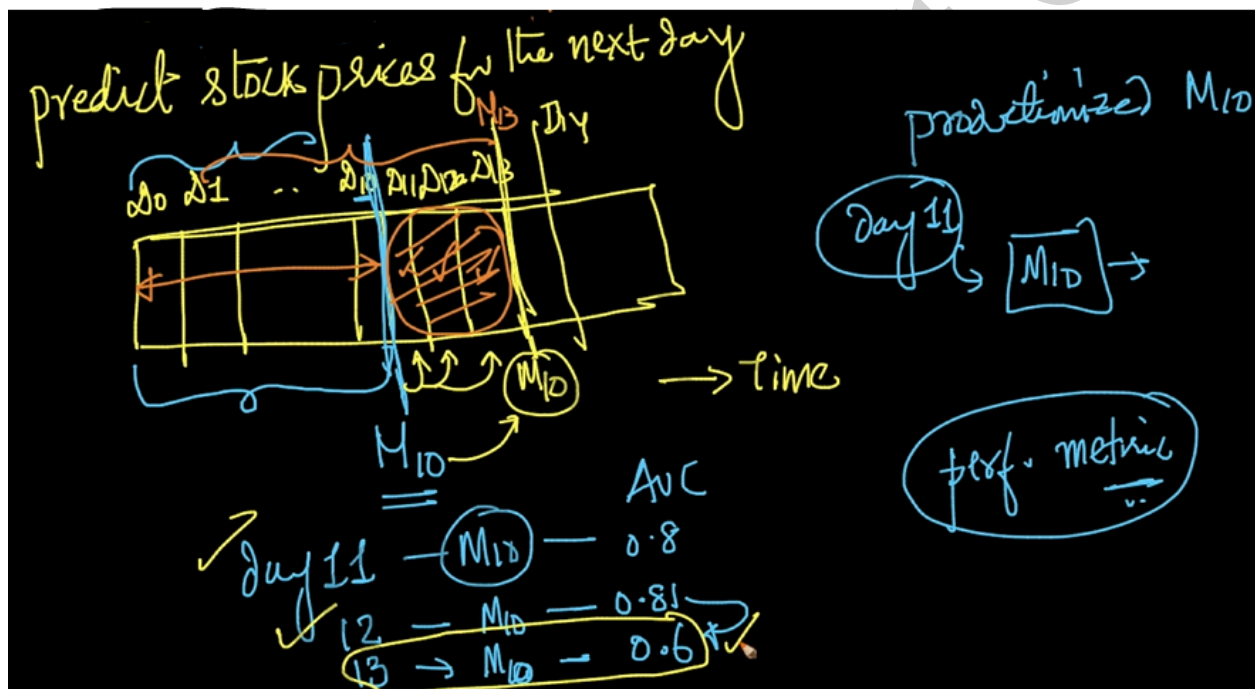 predict stock prices for the next day
M13
D14
D0 D1 .. D10 D11 D12 D13
M10
→ Time
M10
AUC
day 11 — M10 — 0.8
12 — M10 — 0.81
13 → M10 - 0.6
productionized M10
day 11
M10 →
perf. metric